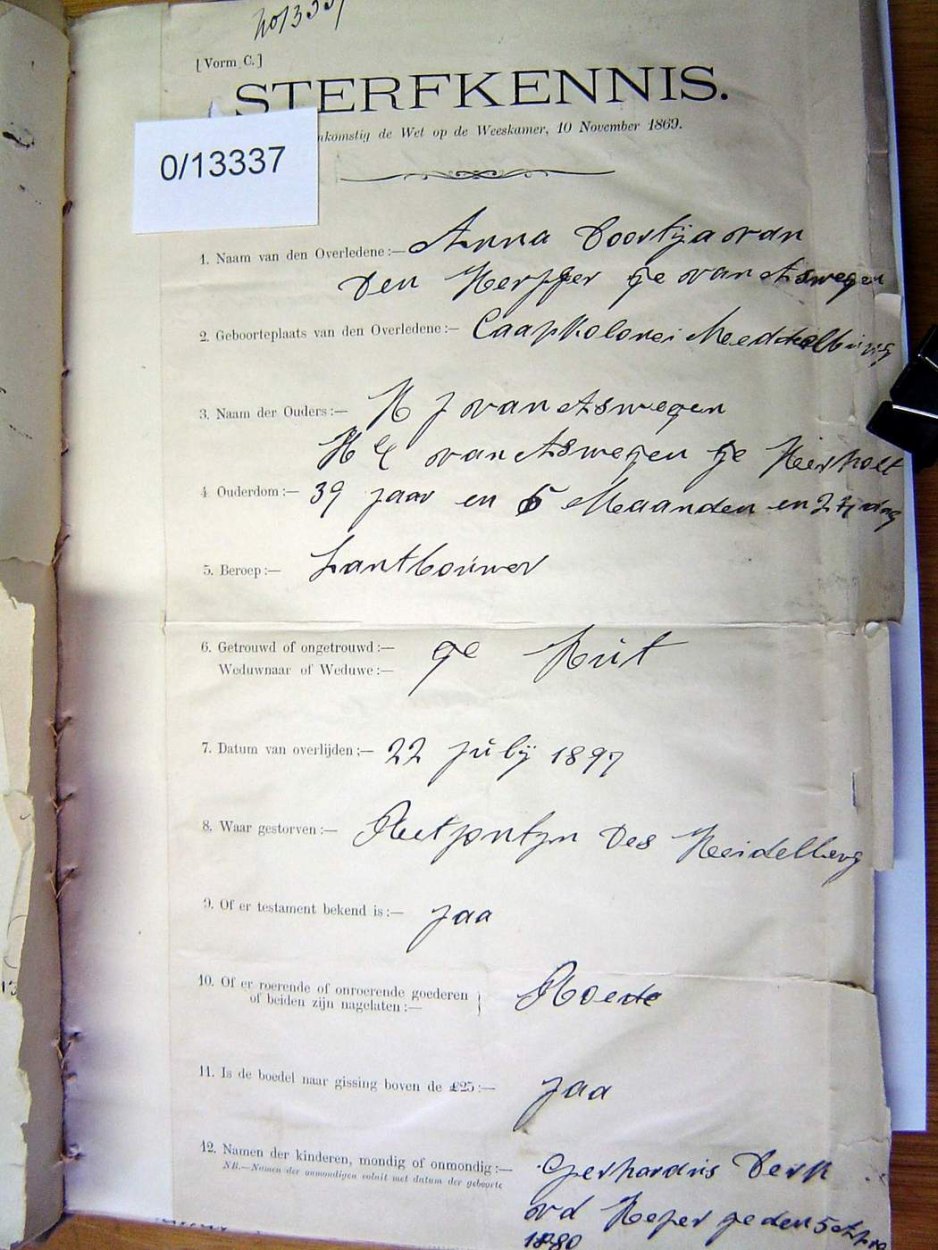 [Vorm C.]
STERFKENNIS.
de Wet op de Weeskamer, 10 November 1869.
0/13337
1. Naam van den Overledene:— Anna Doortija van
Den ge van Aswegen
2. Geboorteplaats van den Overledene:— Caapkolonei
3. Naam der Ouders:— J van Aswegen
van Aswegen ge
4 Ouderdom:— 39 jaar en 6 Maanden en dag
5. Beroep:— Lantbouwer
6. Getrouwd of ongetrouwd:—
Weduwnaar of Weduwe:— ge
7. Datum van overlijden:— 22 julij 1897
8. Waar gestorven:— Des Heidelberg
9. Of er testament bekend is:— jaa
10. Of er roerende of onroerende goederen
of beiden zijn nagelaten:— Roerde
11. Is de boedel naar gissing boven de £25:— jaa
12. Namen der kinderen, mondig of onmondig:— Gerhardus
NB.—Namen der onmondigen voluit met datum der geboorte
vd ge den 5
1880